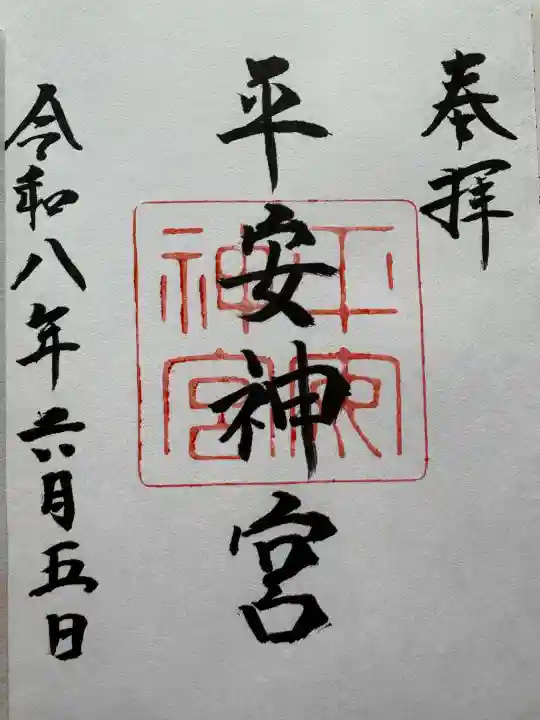 奉拝
平安神宮
平安神宮
令和八年六月五日